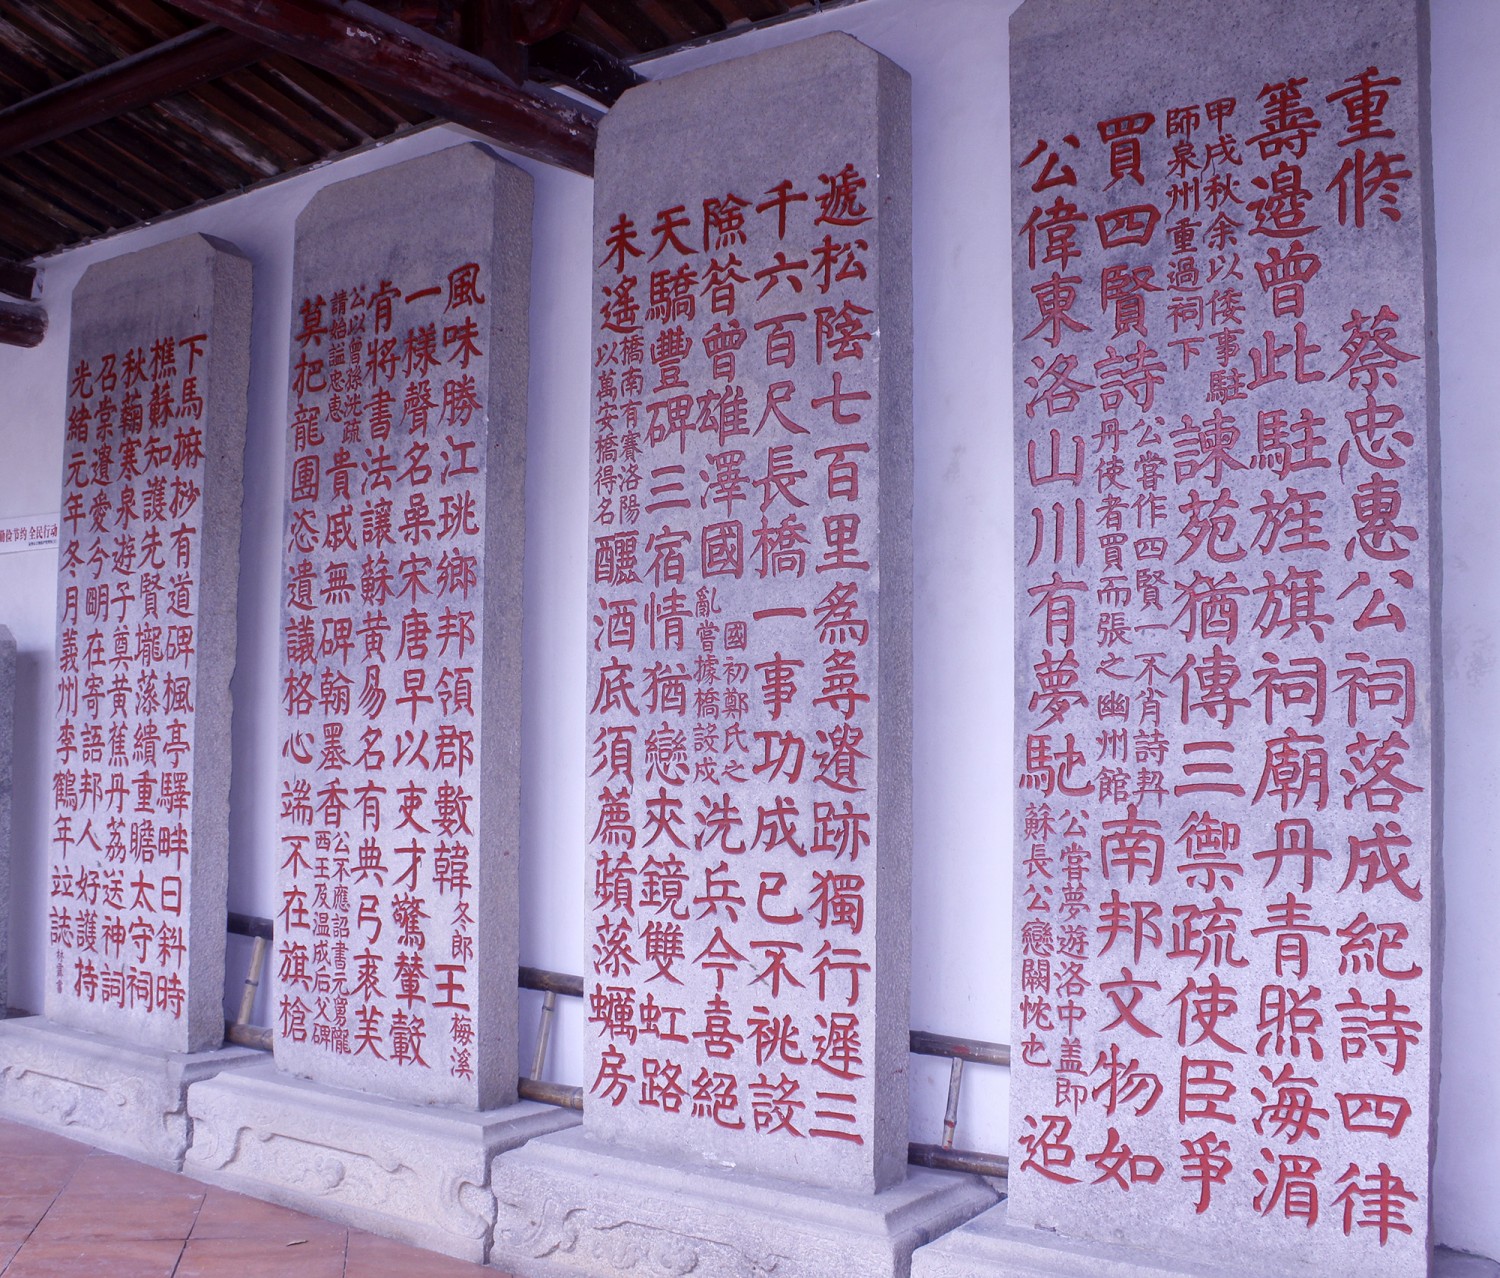 重修 蔡忠惠公祠落成紀詩四律
籌邊曾此駐旌旗祠廟丹青照海湄
甲戌秋余以倭事駐
師泉州重過祠下
諫苑猶傳三御疏使臣爭
買四賢詩
公嘗作四賢一不肖詩契
丹使者買而張之幽州館
南邦文物如
公偉東洛山川有夢馳
公嘗夢遊洛中蓋即
蘇長公戀闕忱也
迢
遞松陰七百里為尋遺跡獨行遲三
千六百尺長橋一事功成已不祧設
險曾雄澤國
國初鄭氏之
亂嘗據橋設戍
洗兵今喜絕
天驕豐碑三宿情猶戀夾鏡雙虹路
未遙
橋南有賽洛陽
以萬安橋得名
釃酒底須薦蘋藻蠣房
風味勝江珧鄉邦領郡數韓
冬郎
王
梅溪
一樣聲名桑宋唐早以吏才驚輦轂
肯將書法讓蘇黃易名有典弓裘美
公以曾孫洸疏
請始謚忠惠
貴戚無碑翰墨香
公不應詔書元舅隴
西王及温成后父碑
莫把龍團恣遺議格心端不在旗槍
下馬摩挲有道碑楓亭驛畔日斜時
樵蘇知護先賢壠藻繢重瞻太守祠
秋蘜寒泉遊子奠黃蕉丹荔送神詞
召棠遺愛今朙在寄語邦人好護持
光緒元年冬月義州李鶴年竝誌
勤俭节约 全民行动